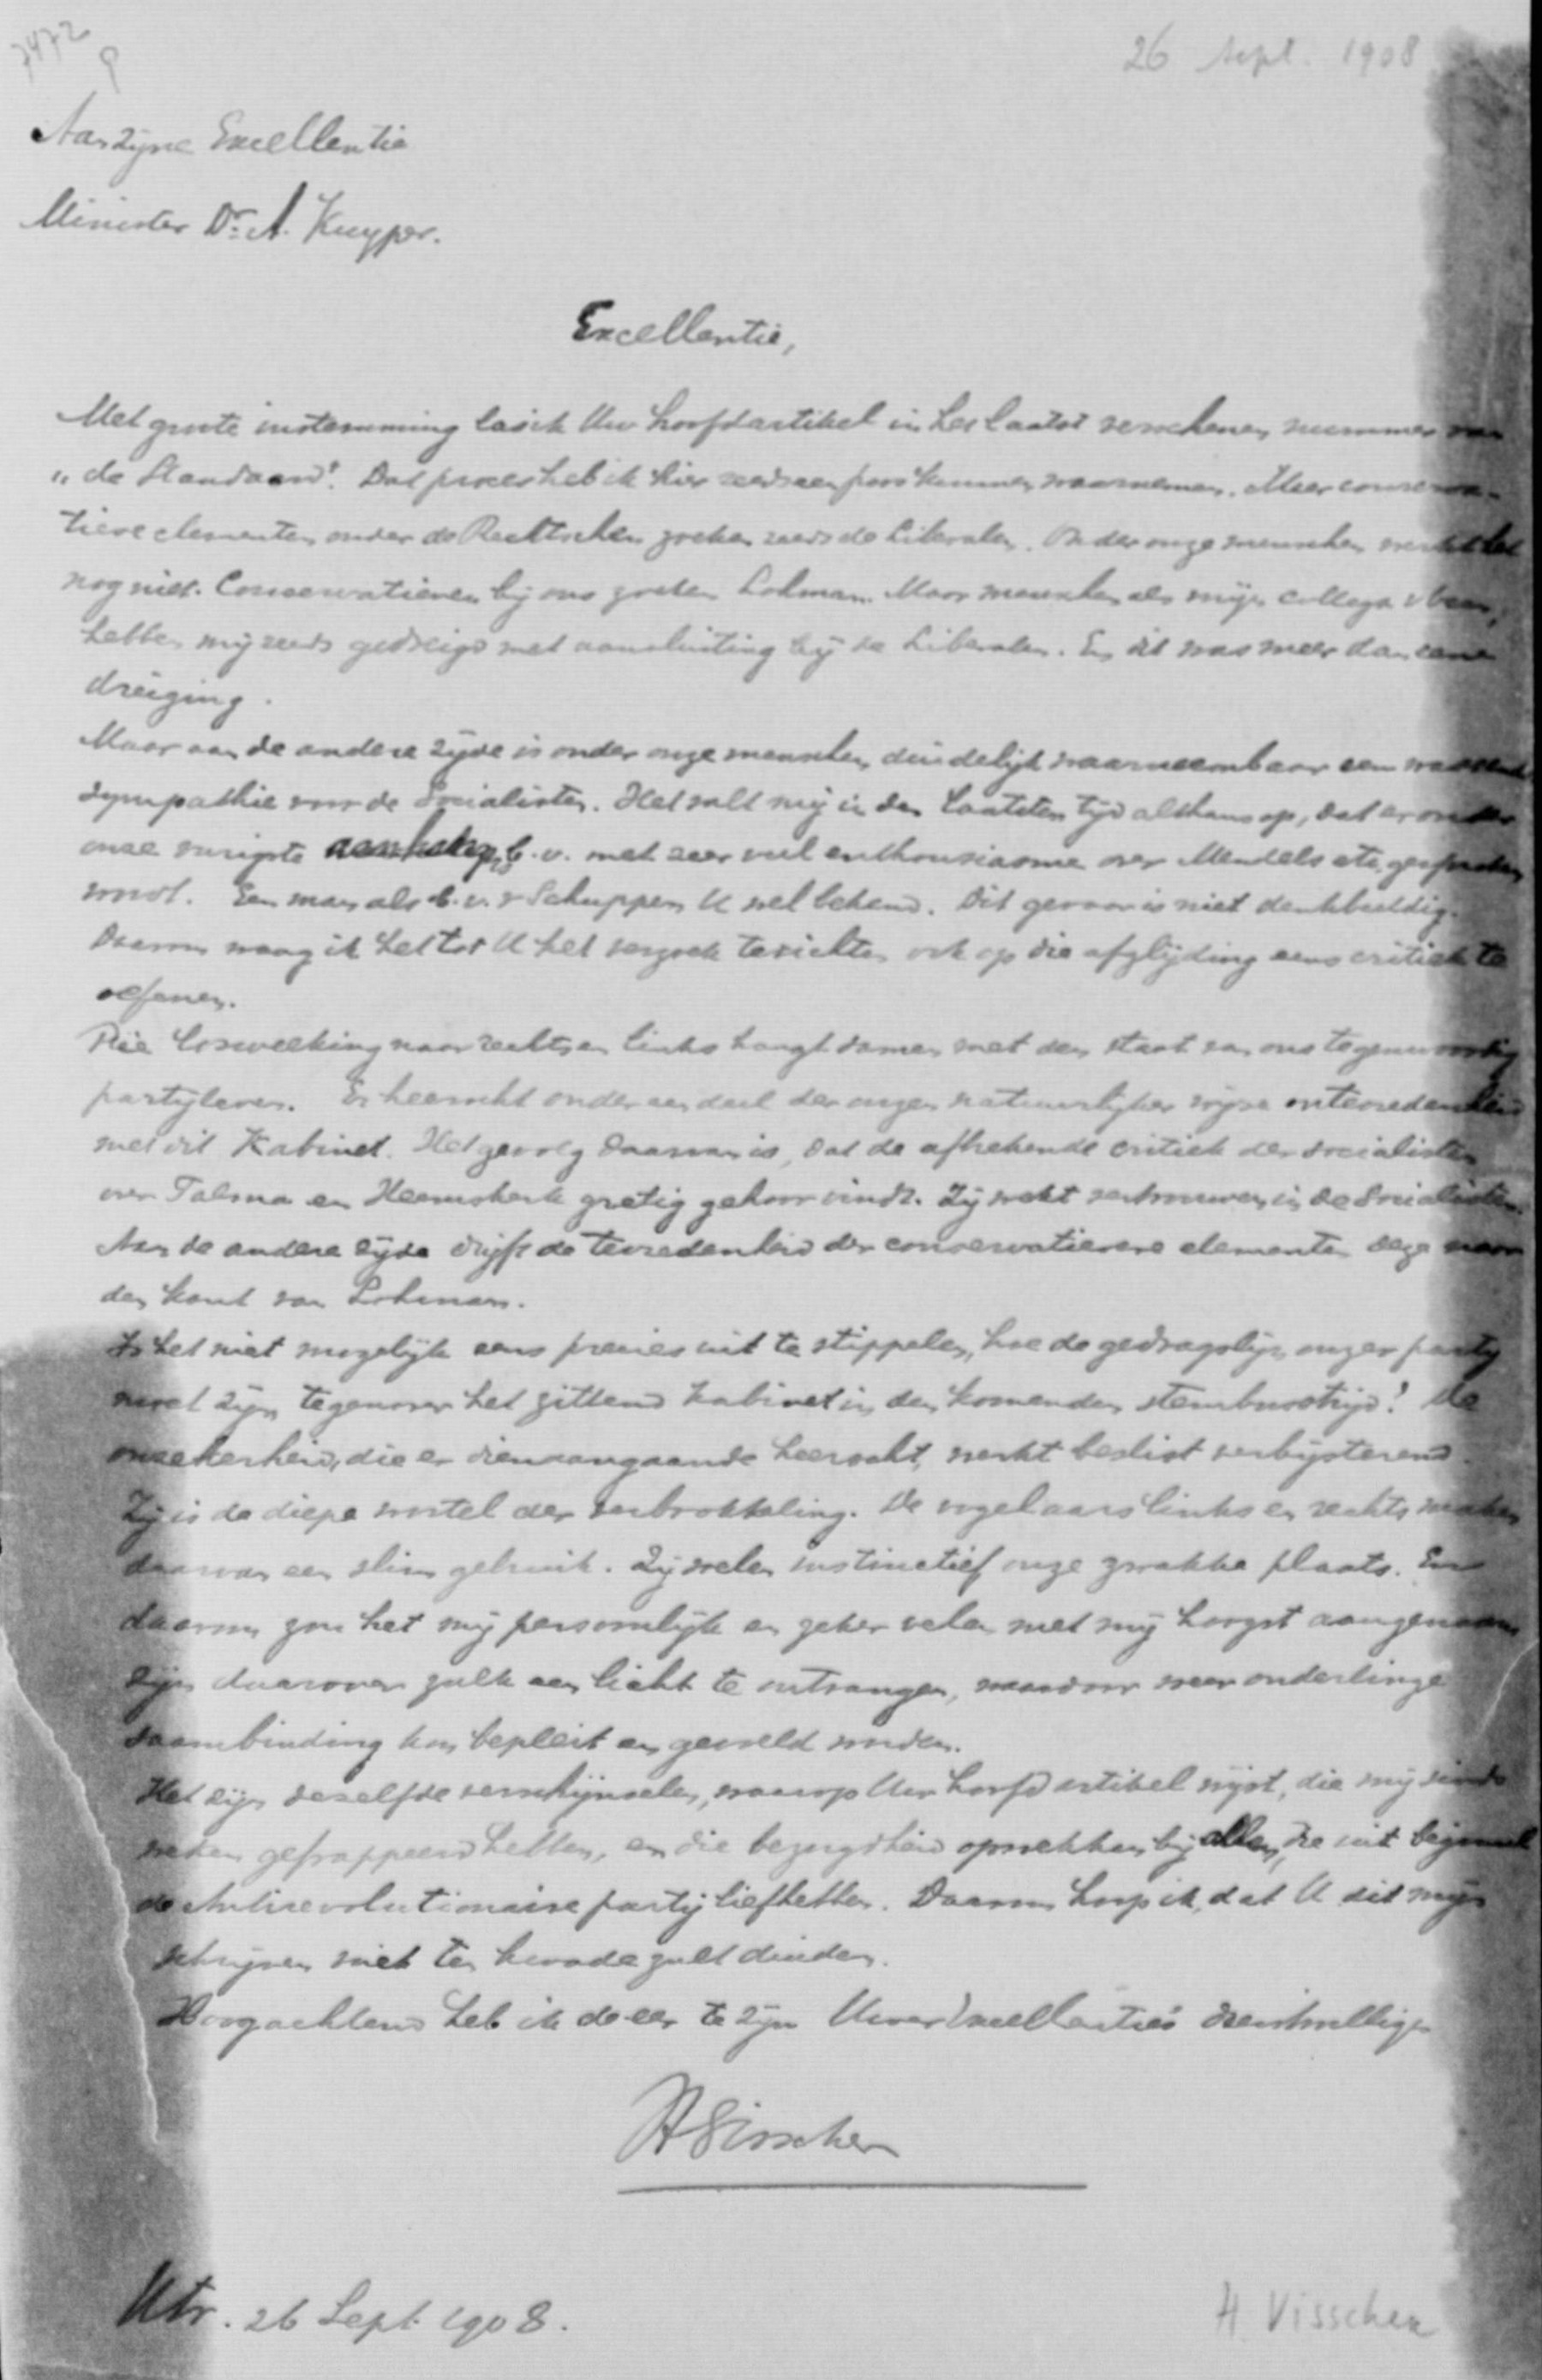 7472
9
26 Sept. 1908
Aan Zijne Excellentie
Minister Dr. A. Kuyper.
Excellentie,
Met groote instemming las ik Uw hoofdartikel in het laatst verschenen nummer van
"de Standaard". Dat proces heb ik hier reeds een paar kunnen waarnemen. Meer conserva-
tieve elementen onder de Rechtschen zoeken reeds de Liberalen. Onder onze menschen werkt het
nog niet. Conservatieven bij ons zoeken Lohman. Maar menschen als mijn collega
hebben mij reeds gedreigd met aansluiting bij de Liberalen. En dit was meer dan eene
dreiging.
Maar aan de andere zijde is onder onze menschen duidelijk waarneembaar een wassende
sympathie voor de Socialisten. Het valt mij in den laatsten tijd althans op, dat er onder
onze vurigste aanhang b.v. met zeer veel enthousiasme over Mendels etc. gesproken
wordt. Een man als b.v. v Schuppen U wel bekend. Dit gevaar is niet denkbeeldig.
Daarom waag ik het tot U het verzoek te richten ook op die afglijding eens critiek te
oefenen.
Die losweeking naar rechts en links hangt samen met den staat van ons tegenwoordig
partijleven. Er heerscht onder een deel der onzen natuurlijker wijze ontevredenheid
met dit Kabinet. Het gevolg daarvan is, dat de afbrekende critiek der socialisten
over Talma en Heemskerk gretig gehoor vindt. Zij wekt vertrouwen in de Socialisten.
Aan de andere zijde drijft de tevredenheid der conservatievere elementen deze naar
den kant van Lohman.
Is het niet mogelijk eens precies uit te stippelen, hoe de gedragslijn onzer partij
moet zijn tegenover het zittend kabinet in den komenden stembusstrijd! De
onzekerheid, die er dienaangaande heerscht, werkt beslist verbijsterend.
Zij is de diepe wortel der verbrokkeling. De vogelaars links en rechts maken
daarvan een slim gebruik. Zij voelen instinctief onze zwakke plaats. En
daarom zou het mij persoonlijk en zeker velen met mij hoogst aangenaam
zijn daarover zulk een licht te ontvangen, waardoor weer onderlinge
saambinding kan bepleit en geveld worden.
Het zijn dezelfde verschijnselen, waarop Uw hoofdartikel wijst, die mij sinds
weken gefrappeerd hebben, en die bezorgdheid opwekken bij allen, die uit beginsel
de Antirevolutionaire partij liefhebben. Daarom hoop ik, dat U dit mijn
schrijven niet ten kwade zult duiden.
Hoogachtend heb ik de eer te zijn Uwer Excellentie's dienstwillige
H Visscher
Utr. 26 Sept. 1908.
H. Visscher